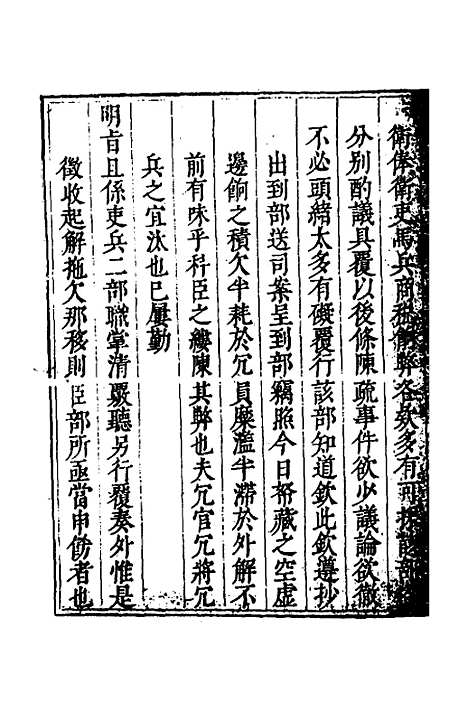 衛俸衛吏馬兵商稅積弊各欵多有可採該部
分别酌議具覆以後條陳疏事件欲少議論欲徹
不必頭緒太多有礙覆行該部知道欽此欽遵抄
出到部送司案呈到部竊照今日帑藏之空虚
邊餉之積欠半耗於冗員糜濫半滯於外解不
前有味乎科臣之縷陳其弊也夫冗官冗將冗
兵之宜汰也已屢勤
明旨且係吏兵二部職掌清嚴聽另行覆奏外惟是
徵收起解拖欠那移則臣部所亟當申飭者也